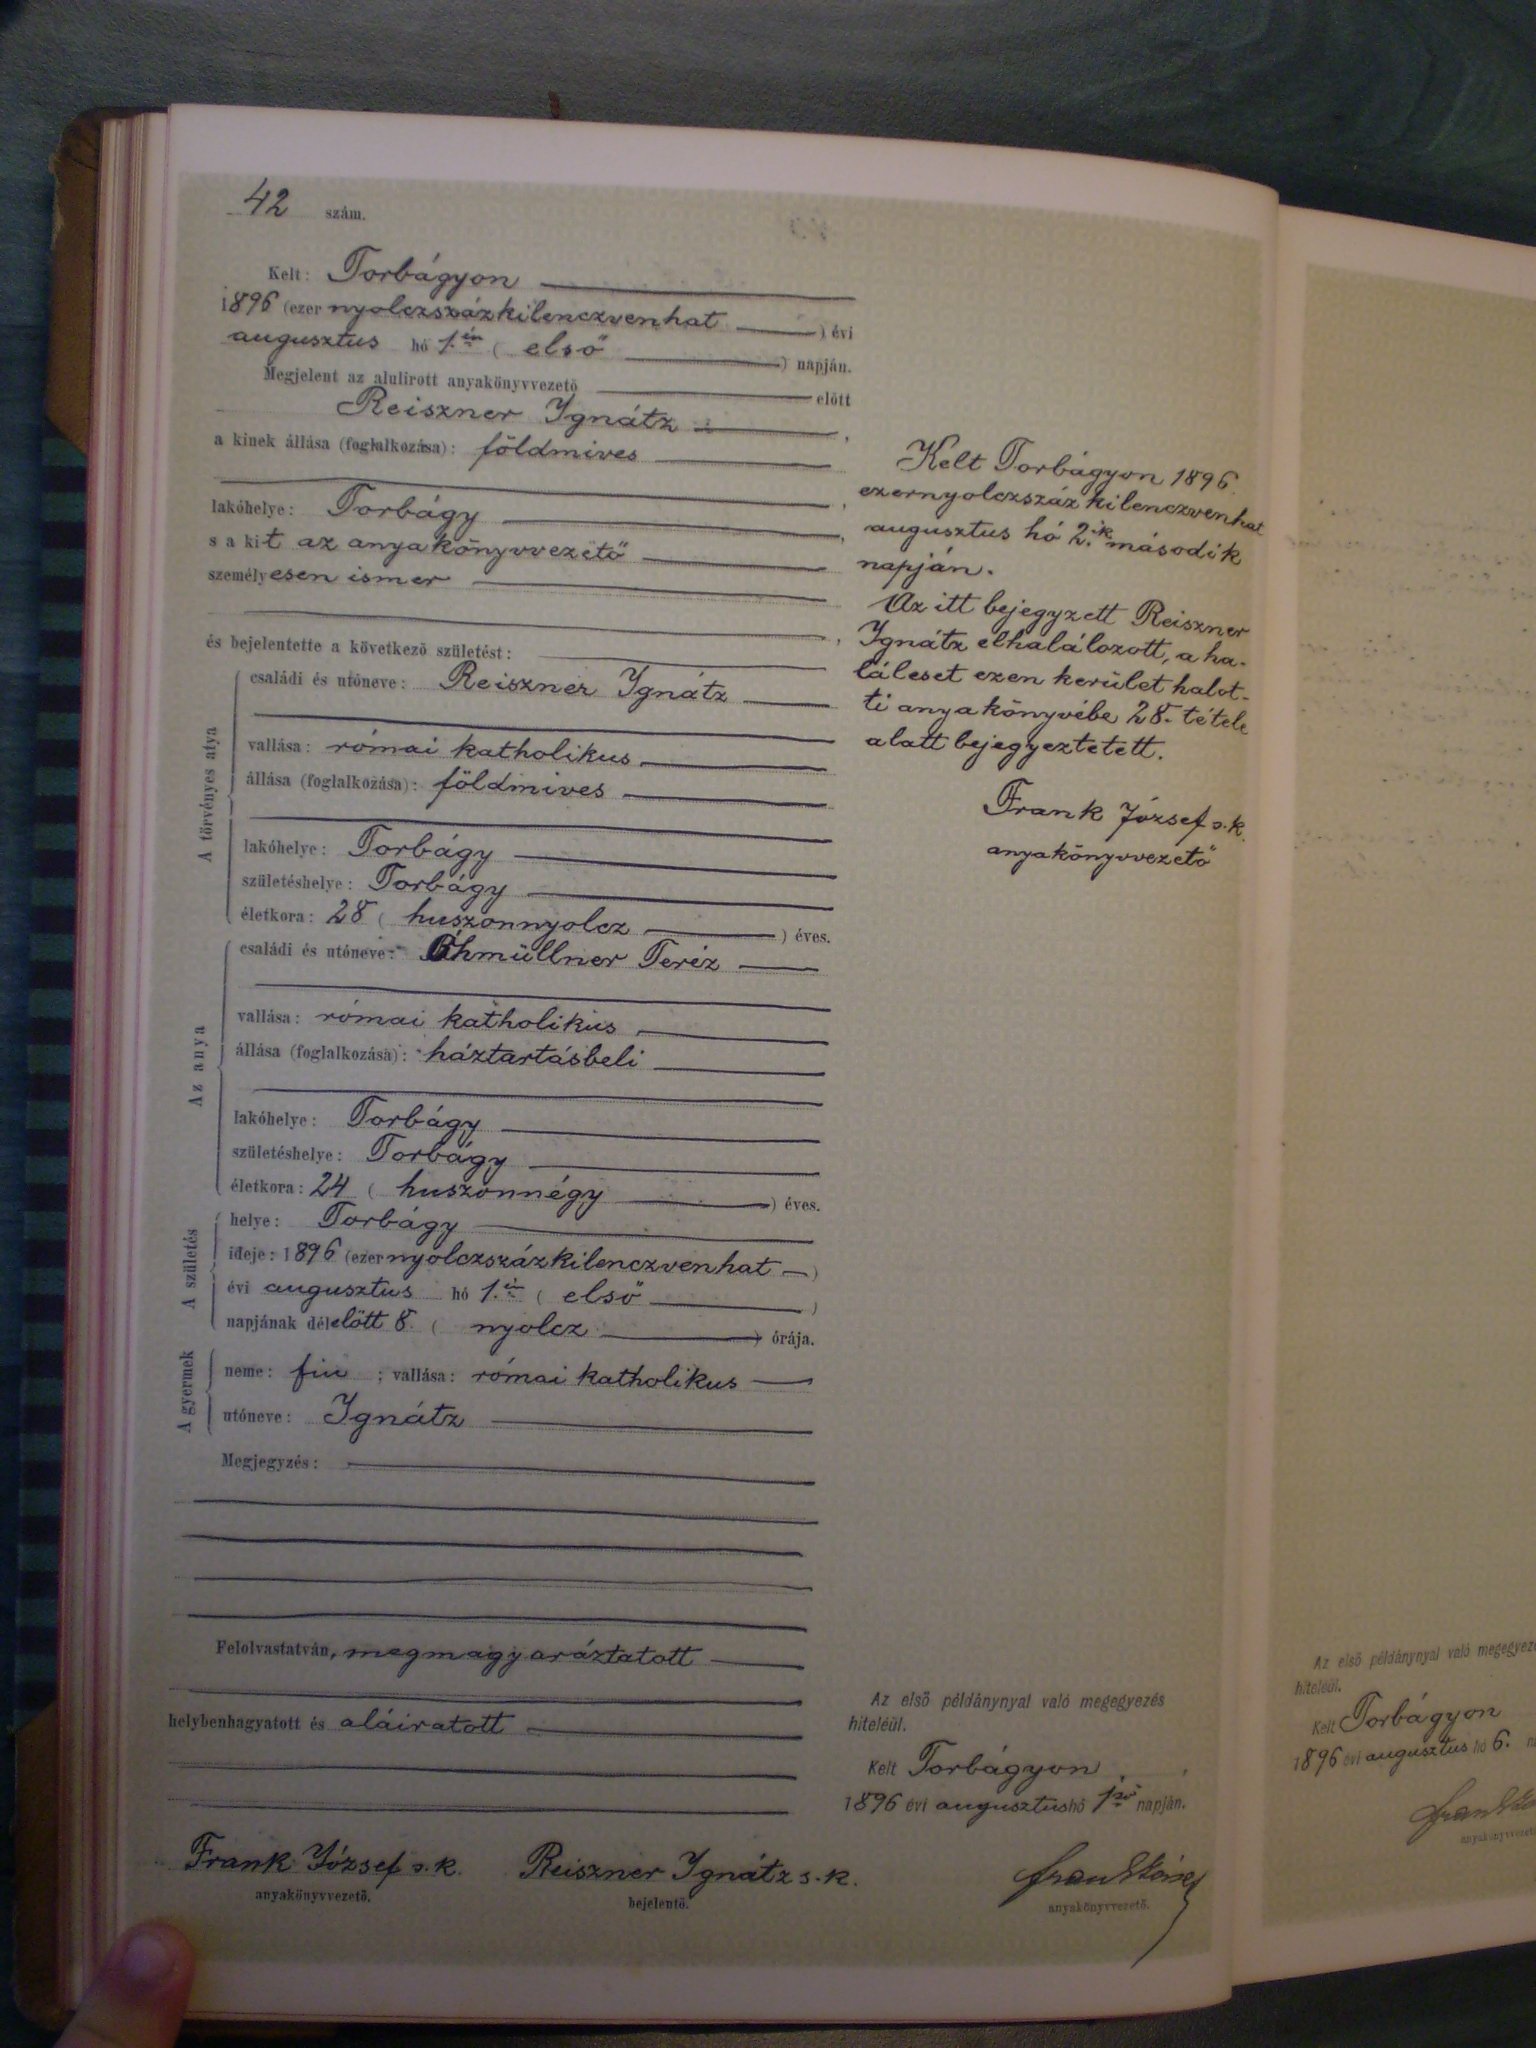 42 szám.
Kelt: Torbágyon
1896 (ezer nyolczszázkilenczvenhat ) évi
augusztus hó 1.én ( első ) napján.
Megjelent az alulirott anyakönyvvezető előtt
Reiszner Ignátz ,
a kinek állása (foglalkozása): földmives
,
lakóhelye: Torbágy ,
s a kit az anyakönyvvezető
személyesen ismer
,
és bejelentette a következő születést:
A törvényes atya
családi és utóneve: Reiszner Ignátz
vallása: római katholikus
állása (foglalkozása): földmives
lakóhelye: Torbágy
születéshelye: Torbágy
életkora: 28 ( huszonnyolcz ) éves.
Az anya
családi és utóneve: Teréz
vallása: római katholikus
állása (foglalkozása): háztartásbeli
lakóhelye: Torbágy
születéshelye: Torbágy
életkora: 24 ( huszonnégy ) éves.
A születés
helye: Torbágy
ideje: 1896 (ezer nyolczszázkilenczvenhat )
évi augusztus hó 1. ( első )
napjának délelőtt 8. ( nyolcz ) órája.
A gyermek
neme: fiu ; vallása: római katholikus
utóneve: Ignátz
Megjegyzés:
Felolvastatván, megmagyaráztatott
helybenhagyatott és aláiratott
Frank József s.k.
anyakönyvvezető.
Reiszner Ignátz s.k.
bejelentő.
Kelt Torbágyon 1896
ezernyolczszáz kilenczvenhat
augusztus hó 2.ik második
napján.
Az itt bejegyzett Reiszner
Ignátz elhalálozott, a ha-
láleset ezen kerület halot-
ti anyakönyvébe 28. tétele
alatt bejegyeztetett.
Frank József s.k.
anyakönyvvezető
Az első példánynyal való megegyezés
hiteléül.
Kelt Torbágyon ,
1896 évi augusztus hó 1 napján.
anyakönyvvezető.
Az első példánynyal való
hiteléül.
Kelt Torbágyon
1896 évi augusztus hó 6.